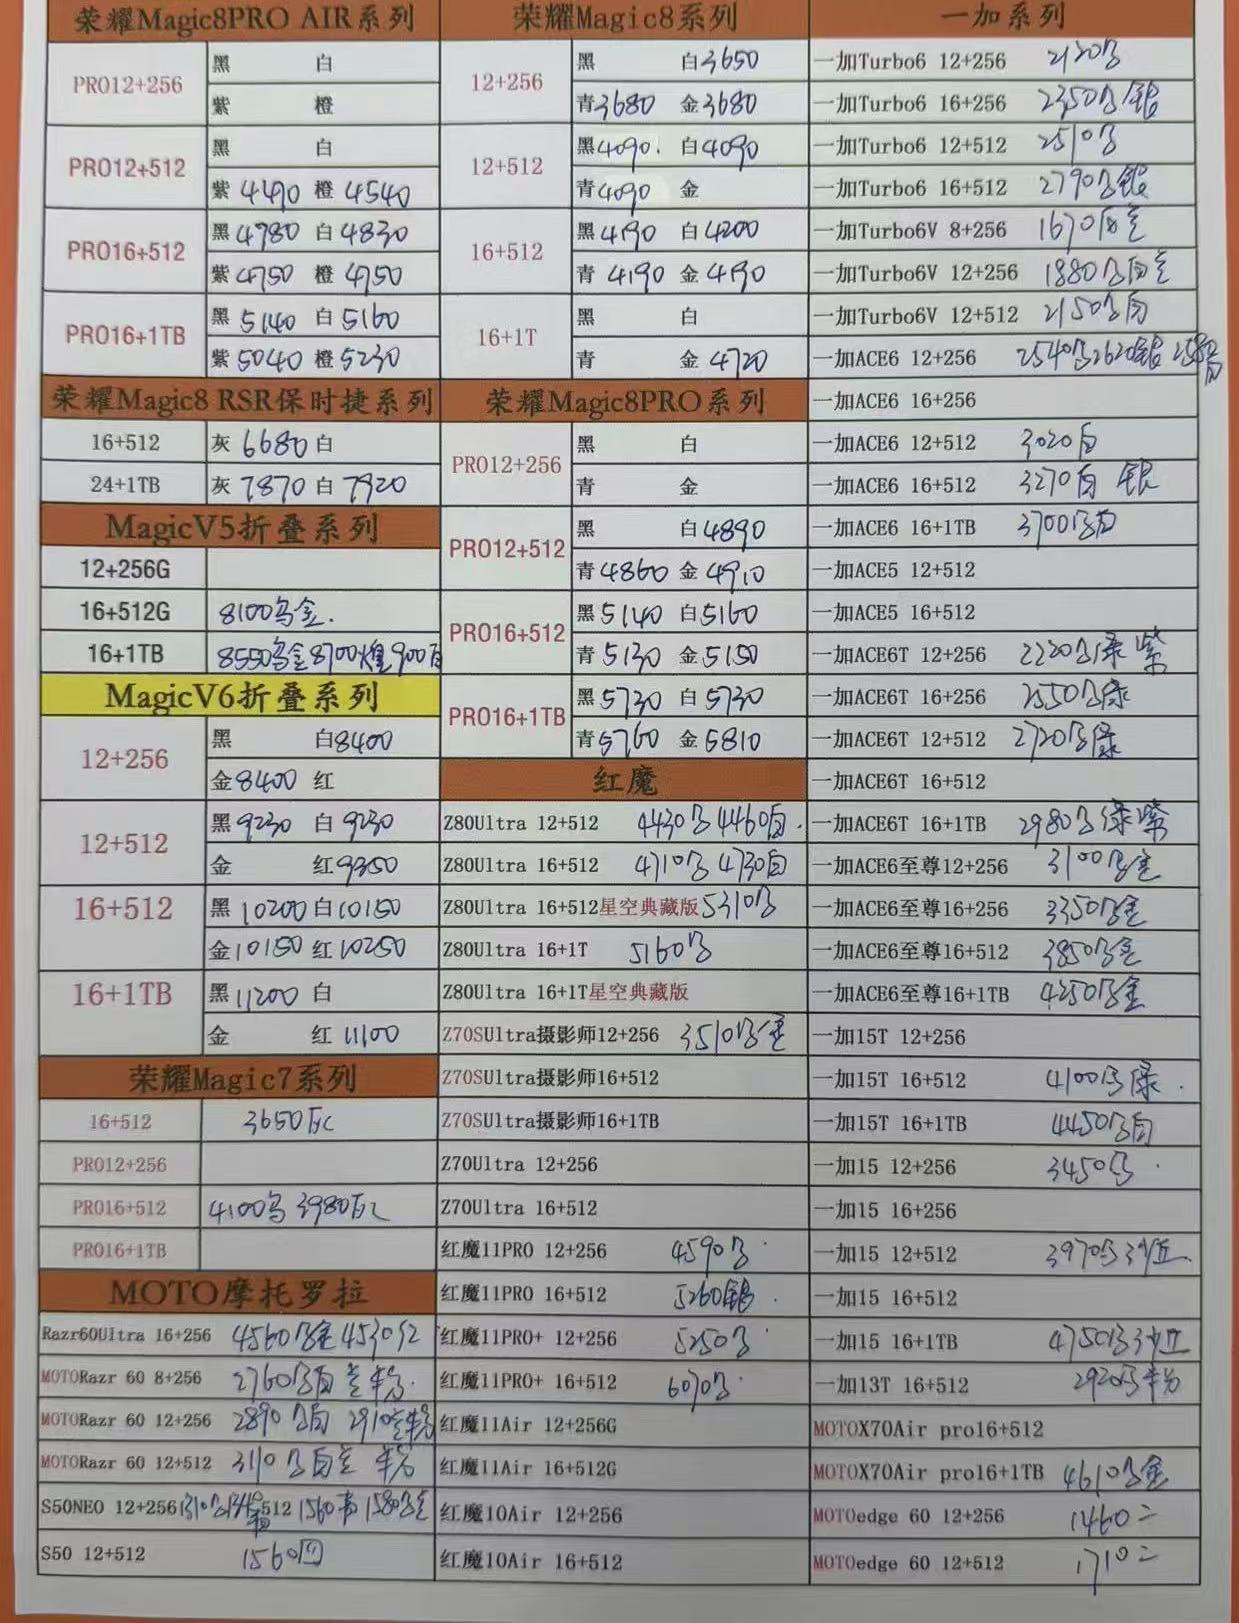 荣耀Magic8PRO AIR系列
PRO12+256 黑 白
紫 橙
PRO12+512 黑 白
紫 4490 橙 4540
PRO16+512 黑 4780 白 4830
紫 4750 橙 4750
PRO16+1TB 黑 5140 白 5160
紫 5040 橙 5230
荣耀Magic8 RSR保时捷系列
16+512 灰 6680 白
24+1TB 灰 7870 白 7920
MagicV5折叠系列
12+256G
16+512G 8100乌金.
16+1TB 8550乌金8700煌900白
MagicV6折叠系列
12+256 黑 白8400
金8400 红
12+512 黑 9230 白 9230
金 红9350
16+512 黑 10200 白 10150
金10150 红 10250
16+1TB 黑 11200 白
金 红 11100
荣耀Magic7系列
16+512 3650灰
PRO12+256
PRO16+512 4100乌 3980灰
PRO16+1TB
MOTO摩托罗拉
Razr60Ultra 16+256 4560 金 4530红
MOTORazr 60 8+256 2760 白
MOTORazr 60 12+256 2890 白 2910
MOTORazr 60 12+512 3110 白
S50NEO 12+256 1310 512 1560 1580
S50 12+512 1560
荣耀Magic8系列
12+256 黑 白3650
青3680 金3680
12+512 黑4090. 白4090
青4090 金
16+512 黑4190 白4200
青 4190 金 4190
16+1T 黑 白
青 金 4720
荣耀Magic8PRO系列
PRO12+256 黑 白
青 金
PRO12+512 黑 白4890
青4860 金 4910
PRO16+512 黑 5140 白5160
青 5130 金5150
PRO16+1TB 黑 5730 白 5730
青5760 金 5810
红魔
Z80Ultra 12+512 4430 4460白.
Z80Ultra 16+512 4710 4730白
Z80Ultra 16+512星空典藏版 5310
Z80Ultra 16+1T 5160
Z80Ultra 16+1T星空典藏版
Z70SUltra摄影师12+256 3510
Z70SUltra摄影师16+512
Z70SUltra摄影师16+1TB
Z70Ultra 12+256
Z70Ultra 16+512
红魔11PRO 12+256 4590
红魔11PRO 16+512 5260银
红魔11PRO+ 12+256 5250
红魔11PRO+ 16+512 6070
红魔11Air 12+256G
红魔11Air 16+512G
红魔10Air 12+256
红魔10Air 16+512
一加系列
一加Turbo6 12+256 2120
一加Turbo6 16+256 2350 银
一加Turbo6 12+512 2510
一加Turbo6 16+512 2790 银
一加Turbo6V 8+256 1670白
一加Turbo6V 12+256 1880 白
一加Turbo6V 12+512 2150 白
一加ACE6 12+256 2540 2620银
一加ACE6 16+256
一加ACE6 12+512 3020白
一加ACE6 16+512 3270白 银
一加ACE6 16+1TB 3700 白
一加ACE5 12+512
一加ACE5 16+512
一加ACE6T 12+256 2220 绿 紫
一加ACE6T 16+256 2550 绿
一加ACE6T 12+512 2720 绿
一加ACE6T 16+512
一加ACE6T 16+1TB 2980 绿紫
一加ACE6至尊12+256 3100 金
一加ACE6至尊16+256 3350 金
一加ACE6至尊16+512 3850 金
一加ACE6至尊16+1TB 4250 金
一加15T 12+256
一加15T 16+512 4100 绿
一加15T 16+1TB 4450 白
一加15 12+256 3450
一加15 16+256
一加15 12+512 3970
一加15 16+512
一加15 16+1TB 4750
一加13T 16+512 2920
MOTOX70Air pro16+512
MOTOX70Air pro16+1TB 4610 金
MOTOedge 60 12+256 1460二
MOTOedge 60 12+512 1710二